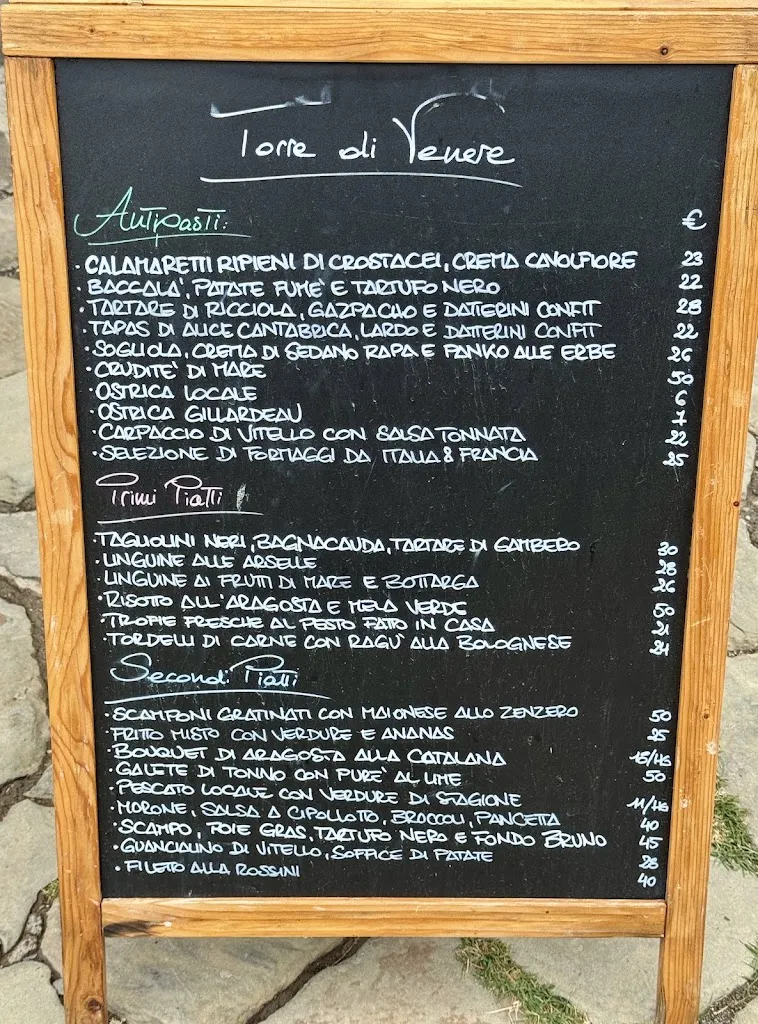 Torre di Venere
Antipasti: €
· CALAMARETTI RIPIENI DI CROSTACEI, CREMA CAVOLFIORE 23
· BACCALA', PATATE FUME' E TARTUFO NERO 22
· TARTARE DI RICCIOLA, GAZPACHO E DATTERINI CONFIT 28
· TAPAS DI ALICE CANTABRICA, LARDO E DATTERINI CONFIT 22
· SOGLIOLA, CREMA DI SEDANO RAPA E PANKO ALLE ERBE 26
· CRUDITE' DI MARE 50
· OSTRICA LOCALE 6
· OSTRICA GILLARDEAU 7
· CARPACCIO DI VITELLO CON SALSA TONNATA 22
· SELEZIONE DI FORMAGGI DA ITALIA & FRANCIA 25
Primi Piatti
· TAGLIOLINI NERI, BAGNACAUDA, TARTARE DI GAMBERO 30
· LINGUINE ALLE ARSELLE 28
· LINGUINE AI FRUTTI DI MARE E BOTTARGA 26
· RISOTTO ALL'ARAGOSTA E MELA VERDE 50
· TROFIE FRESCHE AL PESTO FATTO IN CASA 21
· TORDELLI DI CARNE CON RAGU' ALLA BOLOGNESE 24
Secondi Piatti
· SCAMPONI GRATINATI CON MAIONESE ALLO ZENZERO 50
· FRITTO MISTO CON VERDURE E ANANAS 25
· BOUQUET DI ARAGOSTA ALLA CATALANA 15/HG
· GALETE DI TONNO CON PURE' AL LIME 50
· PESCATO LOCALE CON VERDURE DI STAGIONE 11/HG
· MORONE, SALSA A CIPOLLOTTO, BROCCOLI, PANCETTA 40
· SCAMPO, FOIE GRAS, TARTUFO NERO E FONDO BRUNO 45
· GUANCIALINO DI VITELLO, SOFFICE DI PATATE 28
· FILETTO ALLA ROSSINI 40